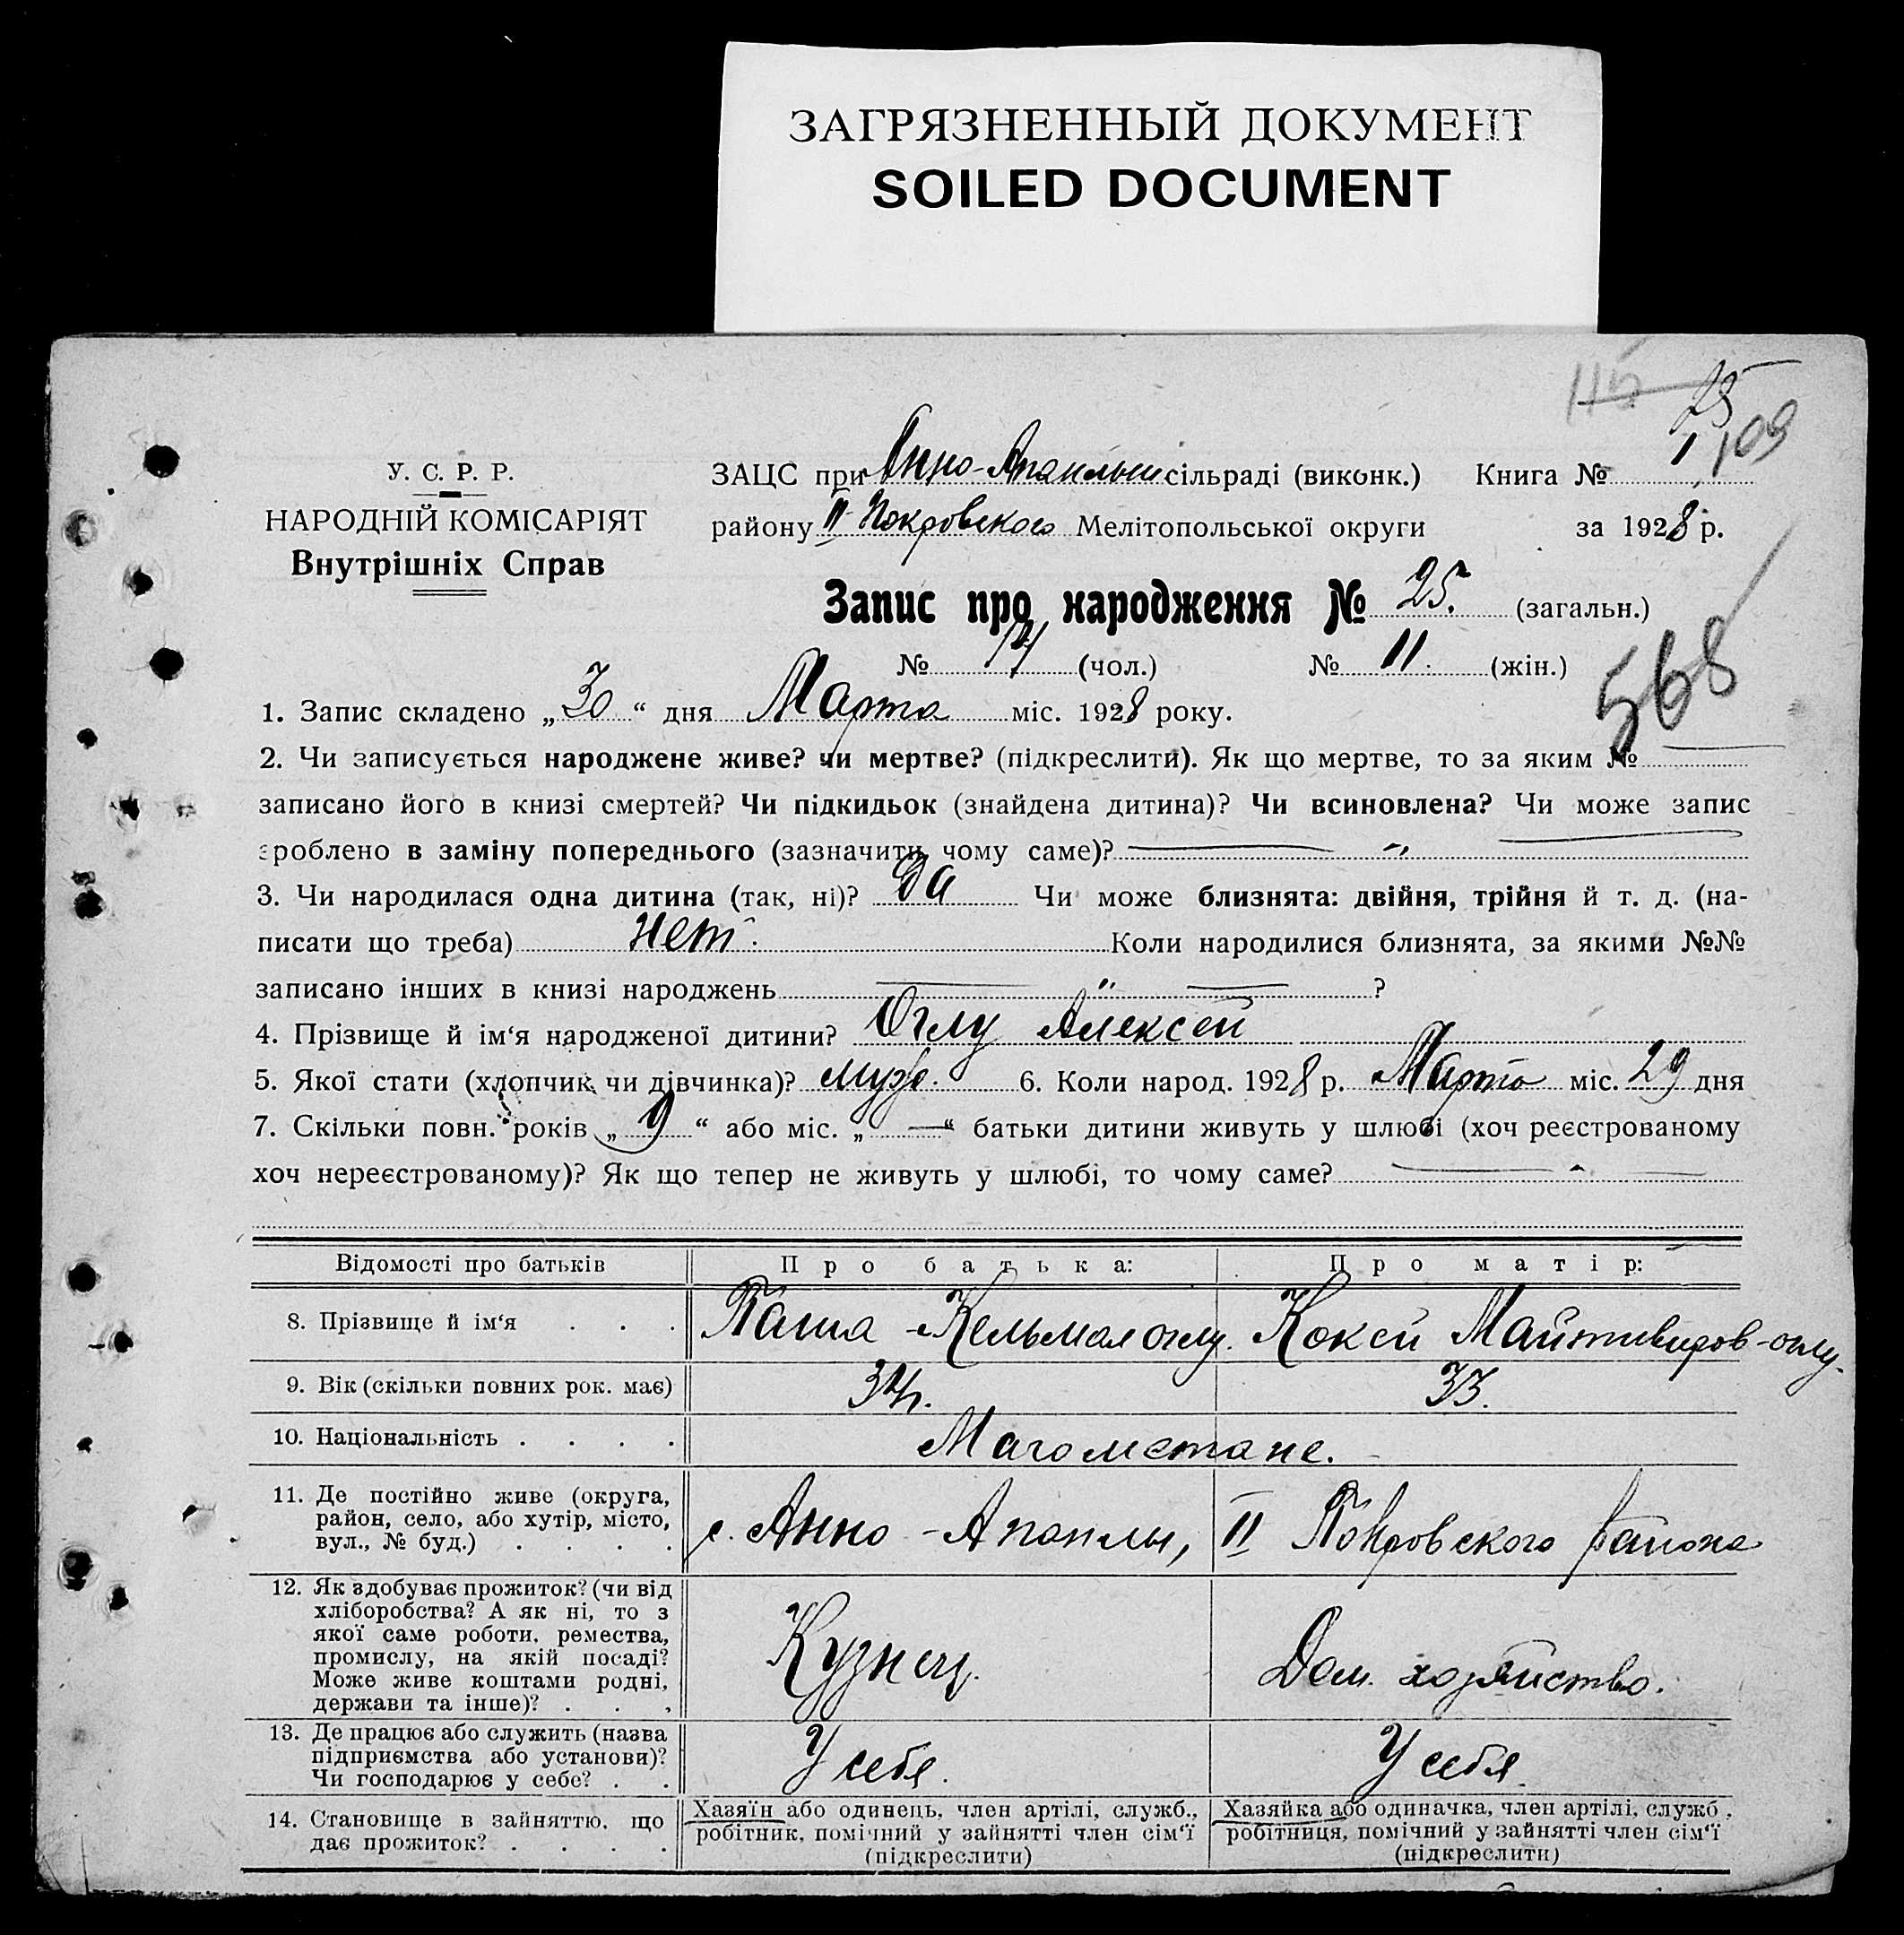 ЗАГРЯЗНЕННЫЙ ДОКУМЕНТ
SOILED DOCUMENT
115
109
У. С. Р. Р.
НАРОДНІЙ КОМІСАРІЯТ
Внутрішніх Справ
ЗАЦС при Анно- сільраді (виконк.) Книга № 1
району II Покровского Мелітопольської округи за 1928 р.
Запис про народження № 25. (загальн.)
№ 14 (чол.) № 11. (жін.)
568
1. Запис складено „30“ дня Марта міс. 1928 року.
2. Чи записується народжене живе? чи мертве? (підкреслити). Як що мертве, то за яким №
записано його в книзі смертей? Чи підкидьок (знайдена дитина)? Чи всиновлена? Чи може запис
зроблено в заміну попереднього (зазначити чому саме)? — „
3. Чи народилася одна дитина (так, ні)? Да Чи може близнята: двійня, трійня й т. д. (на-
писати що треба) Нет. Коли народилися близнята, за якими №№
записано інших в книзі народжень — „ — ?
4. Прізвище й ім‘я народженої дитини? Оглу Алексей
5. Якої стати (хлопчик чи дівчинка)? муж. 6. Коли народ. 1928 р. Марта міс. 29 дня
7. Скільки повн. років „9“ або міс. „—“ батьки дитини живуть у шлюбі (хоч реєстрованому
хоч нереєстрованому)? Як що тепер не живуть у шлюбі, то чому саме?
Відомості про батьків Про батька: Про матір:
8. Прізвище й ім‘я . . . Паша -Кельмал оглу. Кокей -оглу.
9. Вік (скільки повних рок. має) 34. 33.
10. Національність . . . . Магометане.
11. Де постійно живе (округа,
район, село, або хутір, місто,
вул., № буд.) . . . .
с. Анно - Апанлы, II Покровского района
12. Як здобуває прожиток? (чи від
хліборобства? А як ні, то з
якої саме роботи, ремества,
промислу, на якій посаді?
Може живе коштами родні,
держави та інше)? . . .
Кузнец. Дом. хозяйство.
13. Де працює або служить (назва
підприємства або установи)?
Чи господарює у себе? . .
У себя. У себя.
14. Становище в зайняттю, що
дає прожиток? . . . .
Хазяїн або одинець, член артілі, служб.,
робітник, помічний у зайнятті член сім‘ї
(підкреслити)
Хазяйка або одиначка, член артілі, служб.,
робітниця, помічний у зайнятті член сім‘ї
(підкреслити)